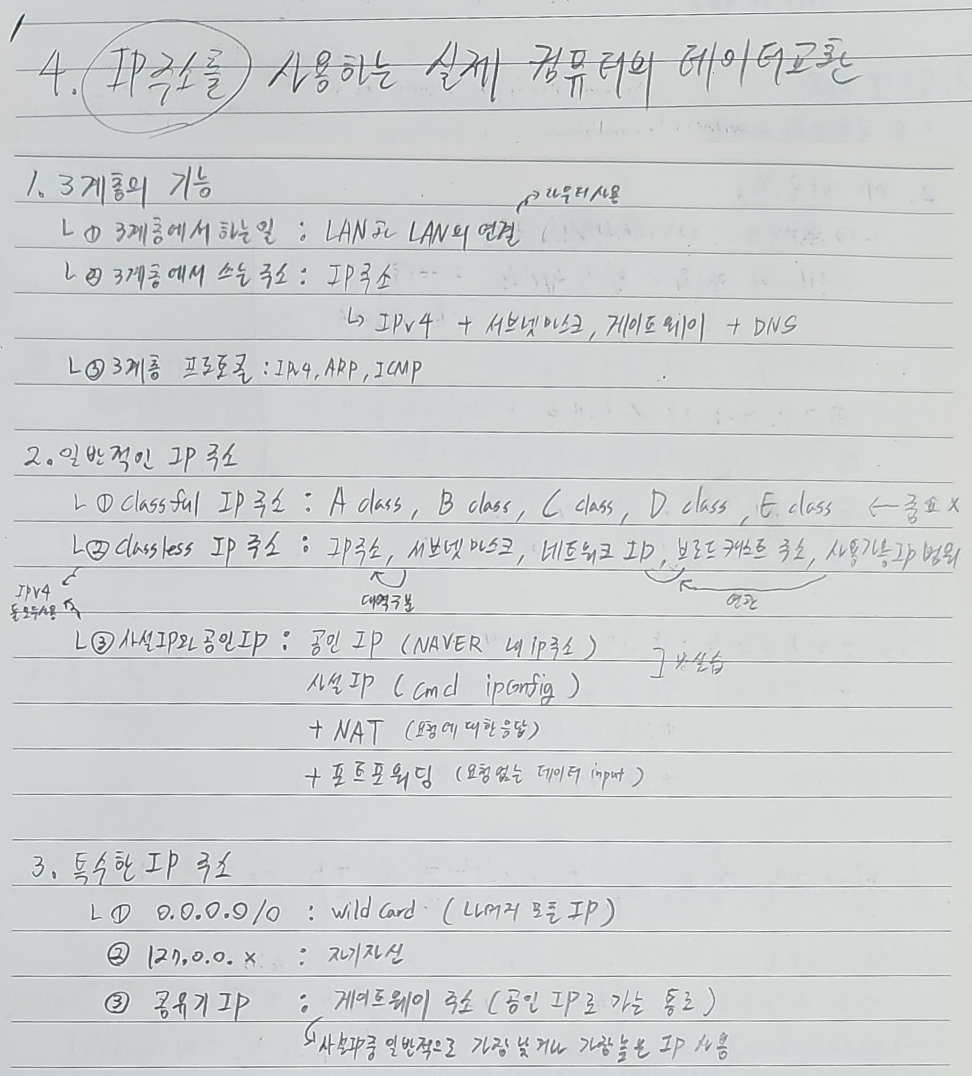 4. IP주소를 사용하는 실제 컴퓨터의 데이터교환
1. 3계층의 기능
→ 라우터사용
ㄴ ① 3계층에서 하는일 : LAN과 LAN의 연결
ㄴ ② 3계층에서 쓰는 주소 : IP주소
↳ IPv4 + 서브넷마스크, 게이트웨이 + DNS
ㄴ ③ 3계층 프로토콜 : IPv4, ARP, ICMP
2. 일반적인 IP 주소
ㄴ ① Classful IP 주소 : A class, B class, C class, D class, E class ← 중요 x
ㄴ ② Classless IP 주소 : IP주소, 서브넷마스크, 네트워크 ID, 브로드캐스트 주소, 사용가능IP 범위
IPv4
둘모두사용
대역구분
연관
ㄴ ③ 사설IP와 공인IP : 공인 IP (NAVER 내 ip주소)
사설 IP (cmd ipconfig)
실습
+ NAT (요청에 대한 응답)
+ 포트포워딩 (요청없는 데이터 input)
3. 특수한 IP 주소
ㄴ ① 0.0.0.0/0 : wild card (나머지 모든 IP)
② 127.0.0.x : 자기자신
③ 공유기 IP : 게이트웨이 주소 (공인 IP로 가는 통로)
↳ 사설IP중 일반적으로 가장 낮거나 가장 높은 IP 사용